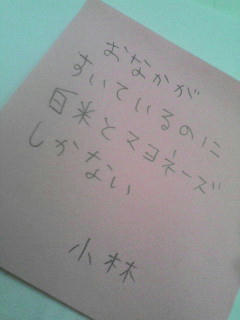 おなかが
すいているのに
白米とマヨネーズ
しかない
小林